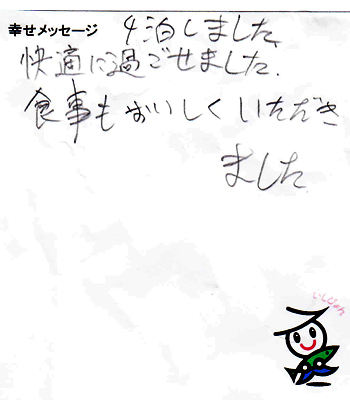 幸せメッセージ 4泊しました、
快適に過ごせました.
食事もおいしくいただき
ました